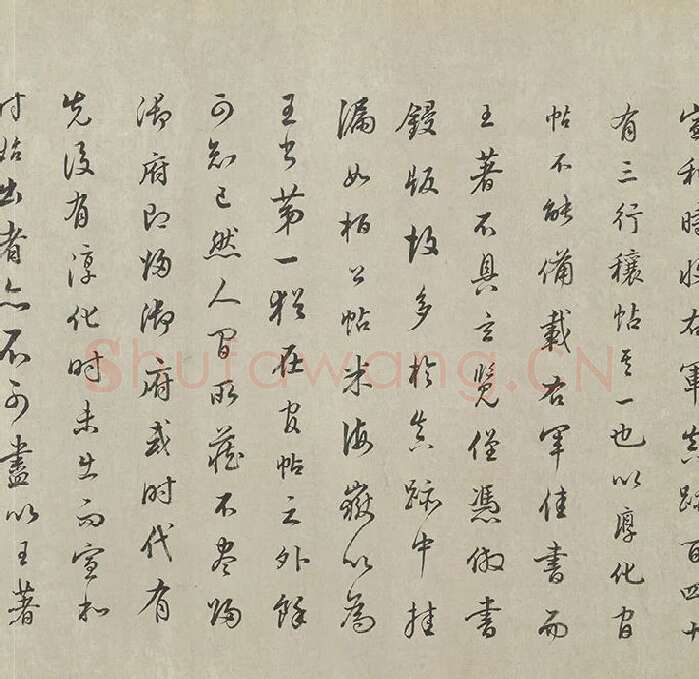 宣和時收右軍真跡百四十
有三行穰帖其一也以淳化官
帖不能備載右軍佳書而
王著不具玄覽僅憑倣書
鋟版故多於真跡中挂
漏如桓公帖米海嶽以為
王書第一猶在官帖之外餘
可知已然人間所藏不盡歸
御府即歸御府或時代有
先後有淳化時未出而宣和
時始出者亦不可盡以王著
Shufawang.CN